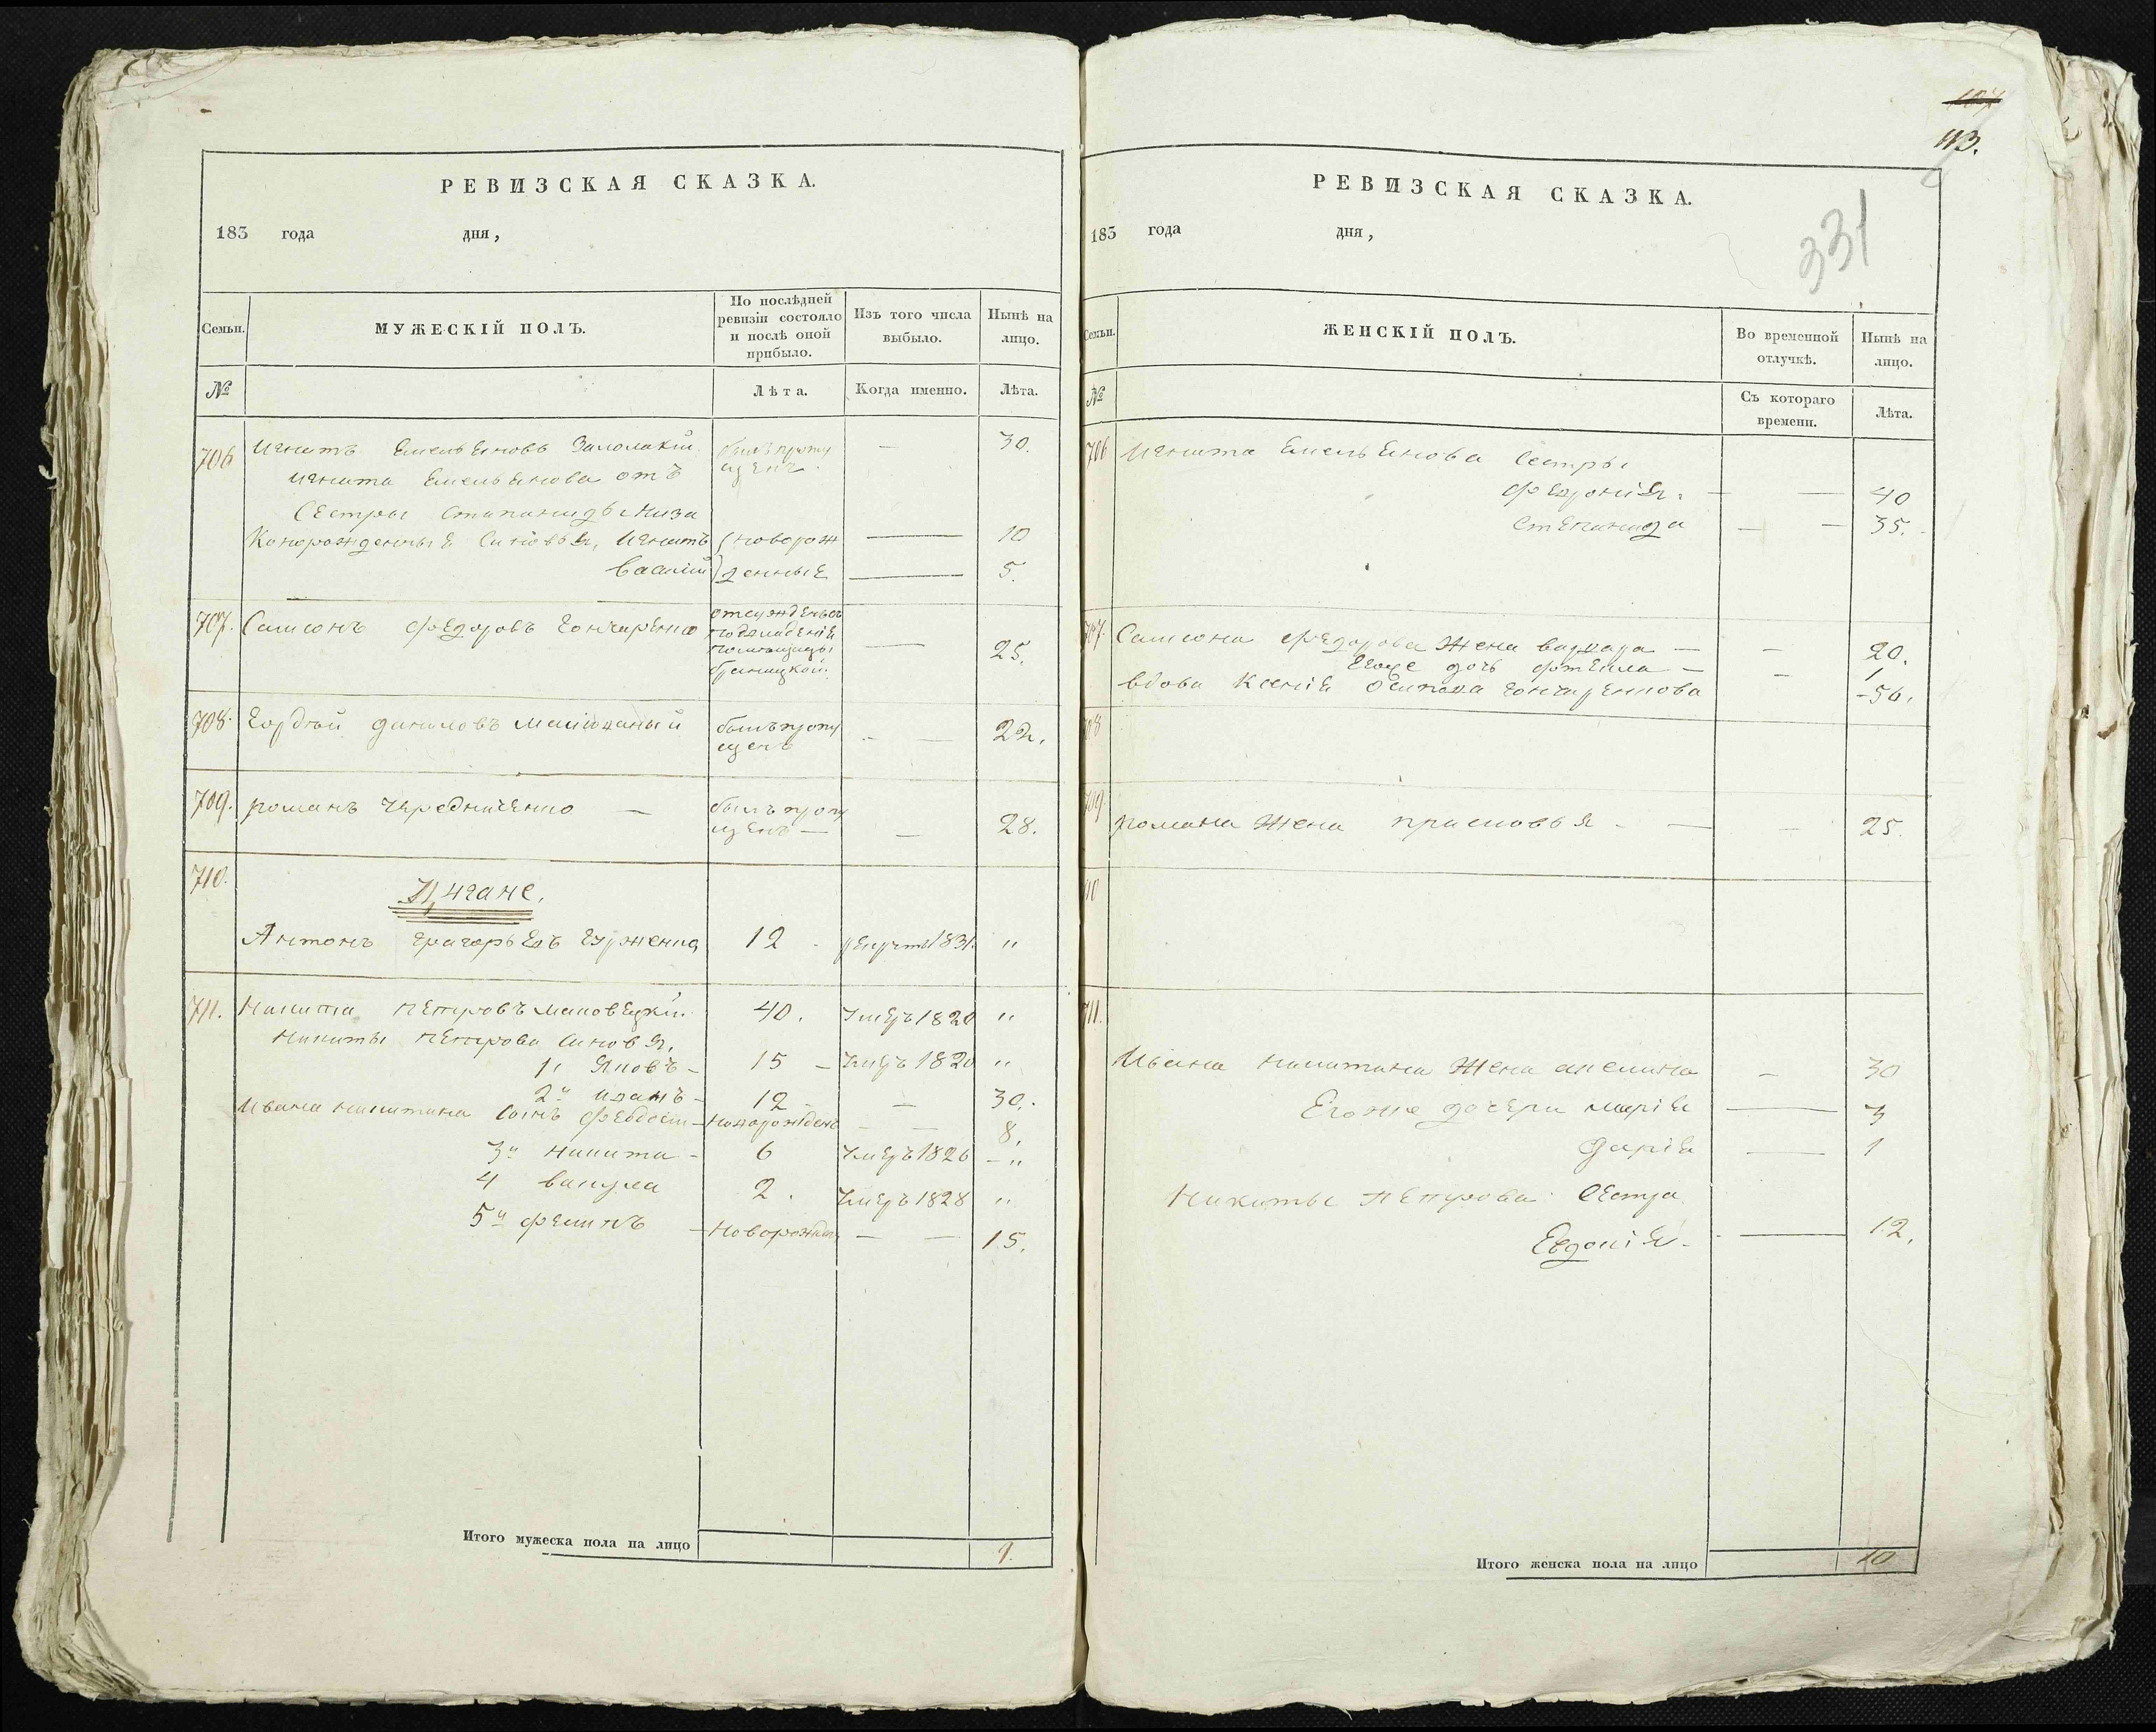 РЕВИЗСКАЯ СКАЗКА.
183 года дня,
Семьи.
МУЖЕСКІЙ ПОЛЪ.
По послѣдней
ревизіи состояло
и послѣ оной
прибыло.
Изъ того числа
выбыло.
Нынѣ на
лицо.
№
Лѣта.
Когда именно.
Лѣта.
706 Игнатъ Емельяновъ 30.
Игната Емельянова отъ
Сестры Степаниды
Сыновья, Игнатъ новорож 10
Васили денные 5.
707. Самсонъ Федоровъ Гончаренко 25.
708. Гордѣй Даниловъ былъ пропу 22.
щенъ
709. Романъ Чередниченко — былъ пропу
щенъ — — 28.
710.
Цигане.
Антонъ Григорьевъ 12 1831. "
711. Никита Петровъ Маковецкій 40. Умеръ 1820 "
Никиты Петрова Сыновья,
1й Яковъ - 15 - Умеръ 1820 "
2й Иванъ - 12 — 30.
Ивана Никитина Сынъ - новорожденъ — — 8.
3й Никита - 6 Умеръ 1826 - "
4 Вакула 2. Умеръ 1828 "
5й - Новорожден — — 15.
Итого мужеска пола на лицо 9.
107
113.
331
РЕВИЗСКАЯ СКАЗКА.
183 года дня,
Семьи.
ЖЕНСКІЙ ПОЛЪ.
Во временной
отлучкѣ.
Нынѣ на
лицо.
№
Съ котораго
времени.
Лѣта.
706 Игната Емельянова Сестры
Февронія. — — 40
Степанида — — 35.
707. Самсона Федорова Жена Варвара — - 20.
Егоже дочь — - 1
Вдова Ксенія Осипова Гончаренкова - 50.
708
709. Романа Жена Присковья - — - 25.
710
711.
Ивана Никитина Жена Акелина - 30
Егоже дочери Марія — 3
Дарія — 1
Никиты Петрова Сестра
Евдокія - — 12.
Итого женска пола на лицо 10